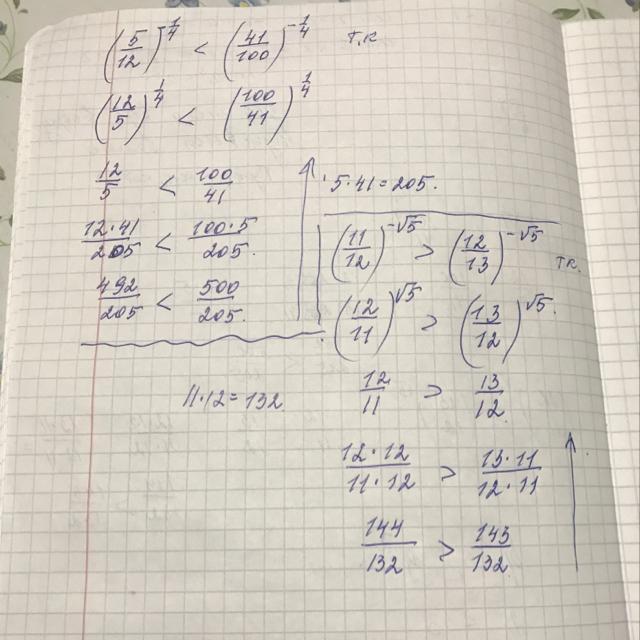 (5/12)^(-1/4) < (41/100)^(-1/4) т.к
(12/5)^(1/4) < (100/41)^(1/4)
12/5 < 100/41
12·41/205 < 100·5/205.
492/205 < 500/205.
5·41=205.
(11/12)^(-√5) > (12/13)^(-√5) т.к.
(12/11)^(√5) > (13/12)^(√5).
11·12=132
12/11 > 13/12.
12·12/11·12 > 13·11/12·11
144/132 > 143/132.